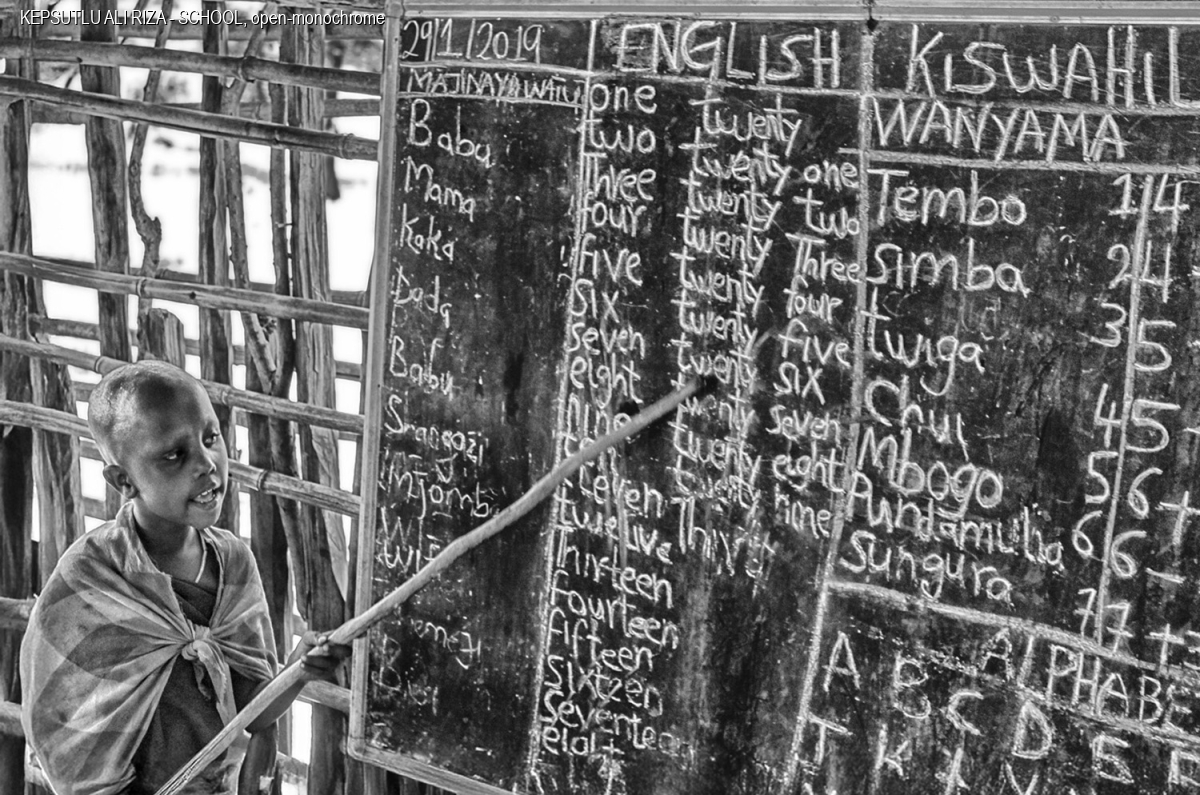 KEPSUTLU ALI RIZA - SCHOOL, open-monochrome
29/1/2019
MAJINA YA WATU
Babu
Mama
Kaka
Dada
Babu
Shangazi
Mjomba
ENGLISH
one
two
Three
four
five
six
seven
eight
nine
ten
eleven
twelve
Thirteen
Fourteen
Fifteen
Sixteen
Seventeen
twenty
twenty one
twenty two
twenty Three
twenty four
twenty five
twenty six
twenty seven
twenty eight
twenty nine
Thirty
KISWAHIL
WANYAMA
Tembo
Simba
twiga
Chui
Mbogo
Pundamulia
Sungura
1 4
2 4
3 5
4 5
5 6 +
6 6 -
7 7 +
ALPHABE
A B C D E